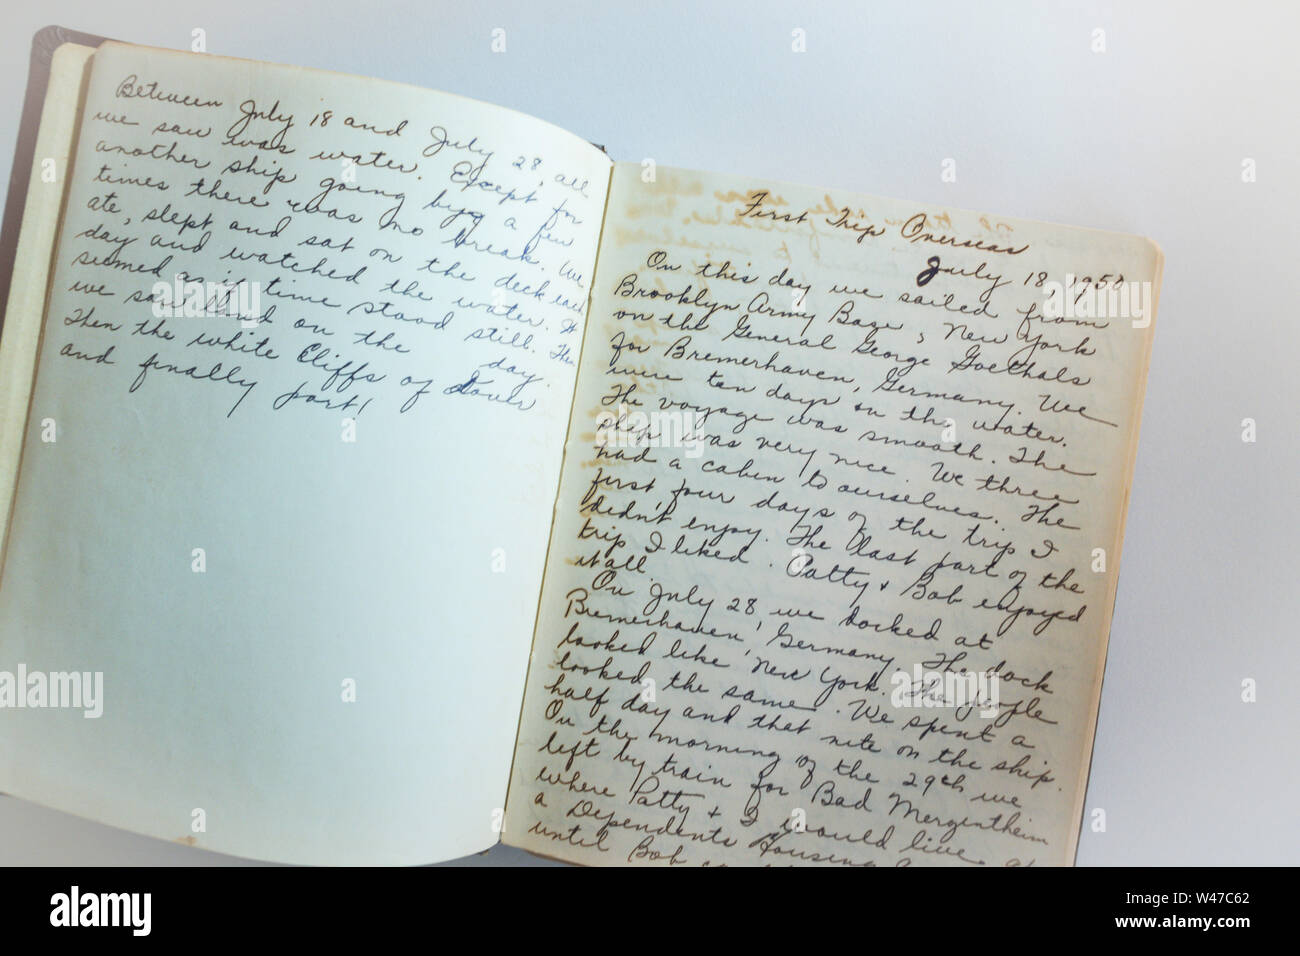 Between July 18 and July 28, all
we saw was water. Except for
another ship going by a few
times there was no break. We
ate, slept and sat on the deck each
day and watched the water. It
seemed as if time stood still. Then
we saw land on the day.
Then the white Cliffs of Dover
and finally port!
First Trip Overseas
July 18, 1950
On this day we sailed from
Brooklyn Army Base, New York
on the General George Goethals
for Bremerhaven, Germany. We
were ten days on the water.
The voyage was smooth. The
ship was very nice. We three
had a cabin to ourselves. The
first four days of the trip I
didn't enjoy. The last part of the
trip I liked. Patty & Bob enjoyed
it all
On July 28, we docked at
Bremerhaven, Germany. The dock
looked like New York. The people
looked the same. We spent a
half day and that nite on the ship.
On the morning of the 29th we
left by train for Bad Mergentheim
where Patty & I would live at
a Dependents Housing
until Bob
alamy
Image ID: W47C62
www.alamy.com